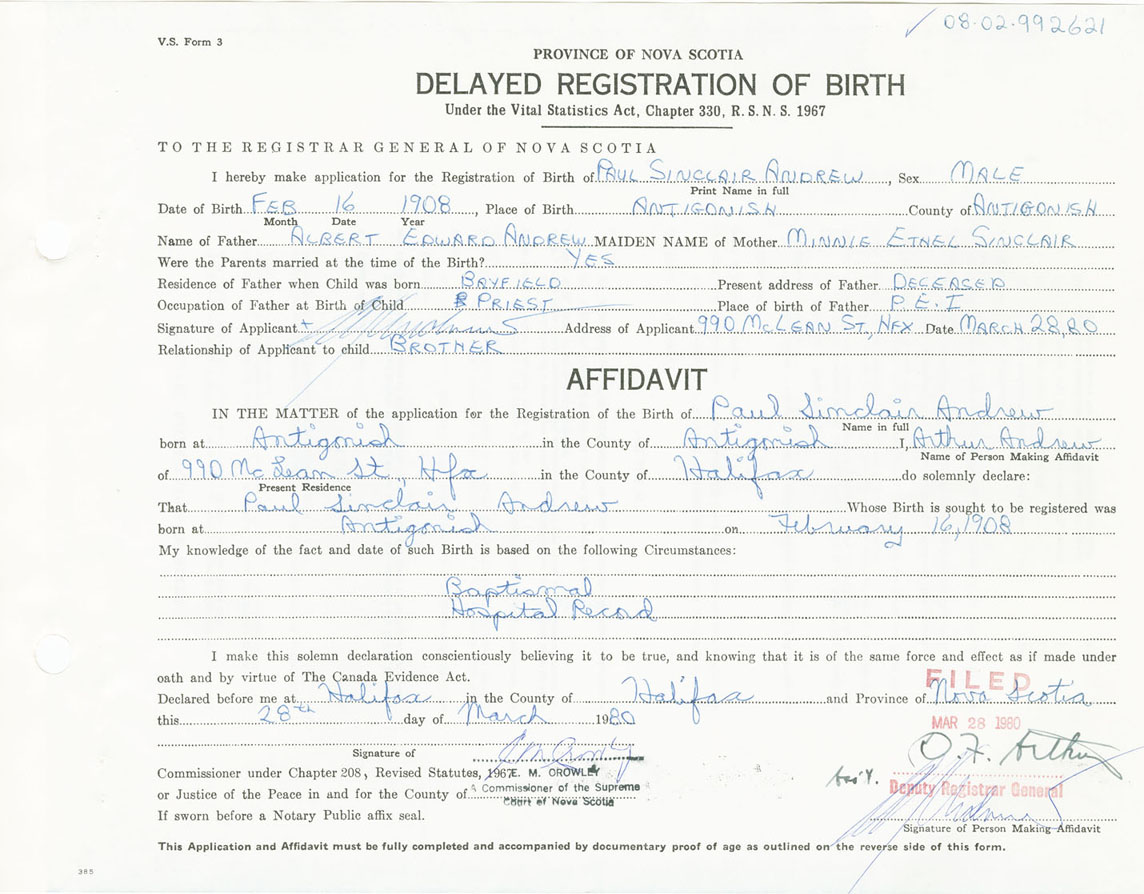 08-02-992621
V.S. Form 3
PROVINCE OF NOVA SCOTIA
DELAYED REGISTRATION OF BIRTH
Under the Vital Statistics Act, Chapter 330, R. S. N. S. 1967
TO THE REGISTRAR GENERAL OF NOVA SCOTIA
I hereby make application for the Registration of Birth of PAUL SINCLAIR ANDREW, Sex MALE
Print Name in full
Date of Birth FEB 16 1908, Place of Birth ANTIGONISH County of ANTIGONISH
Month Date Year
Name of Father ALBERT EDWARD ANDREW MAIDEN NAME of Mother MINNIE ETHEL SINCLAIR
Were the Parents married at the time of the Birth? YES
Residence of Father when Child was born BAYFIELD Present address of Father DECEASED
Occupation of Father at Birth of Child PRIEST Place of birth of Father P.E.I
Signature of Applicant Address of Applicant 990 McLEAN ST, HFX. Date MARCH 28, 80
Relationship of Applicant to child BROTHER
AFFIDAVIT
IN THE MATTER of the application for the Registration of the Birth of Paul Sinclair Andrew
Name in full
born at Antigonish in the County of Antigonish I, Arthur Andrew
Name of Person Making Affidavit
of 990 McLean St., Hfx in the County of Halifax do solemnly declare:
Present Residence
That Paul Sinclair Andrew Whose Birth is sought to be registered was
born at Antigonish on February 16, 1908
My knowledge of the fact and date of such Birth is based on the following Circumstances:
Baptismal
Hospital Record
I make this solemn declaration conscientiously believing it to be true, and knowing that it is of the same force and effect as if made under
oath and by virtue of The Canada Evidence Act.
FILED
Declared before me at Halifax in the County of Halifax and Province of Nova Scotia
this 28th day of March 1980
MAR 28 1980
Signature of
Commissioner under Chapter 208, Revised Statutes, 1967. E. M. CROWLEY
or Justice of the Peace in and for the County of A Commissioner of the Supreme
Court of Nova Scotia
Deputy Registrar General
If sworn before a Notary Public affix seal.
Signature of Person Making Affidavit
This Application and Affidavit must be fully completed and accompanied by documentary proof of age as outlined on the reverse side of this form.
385